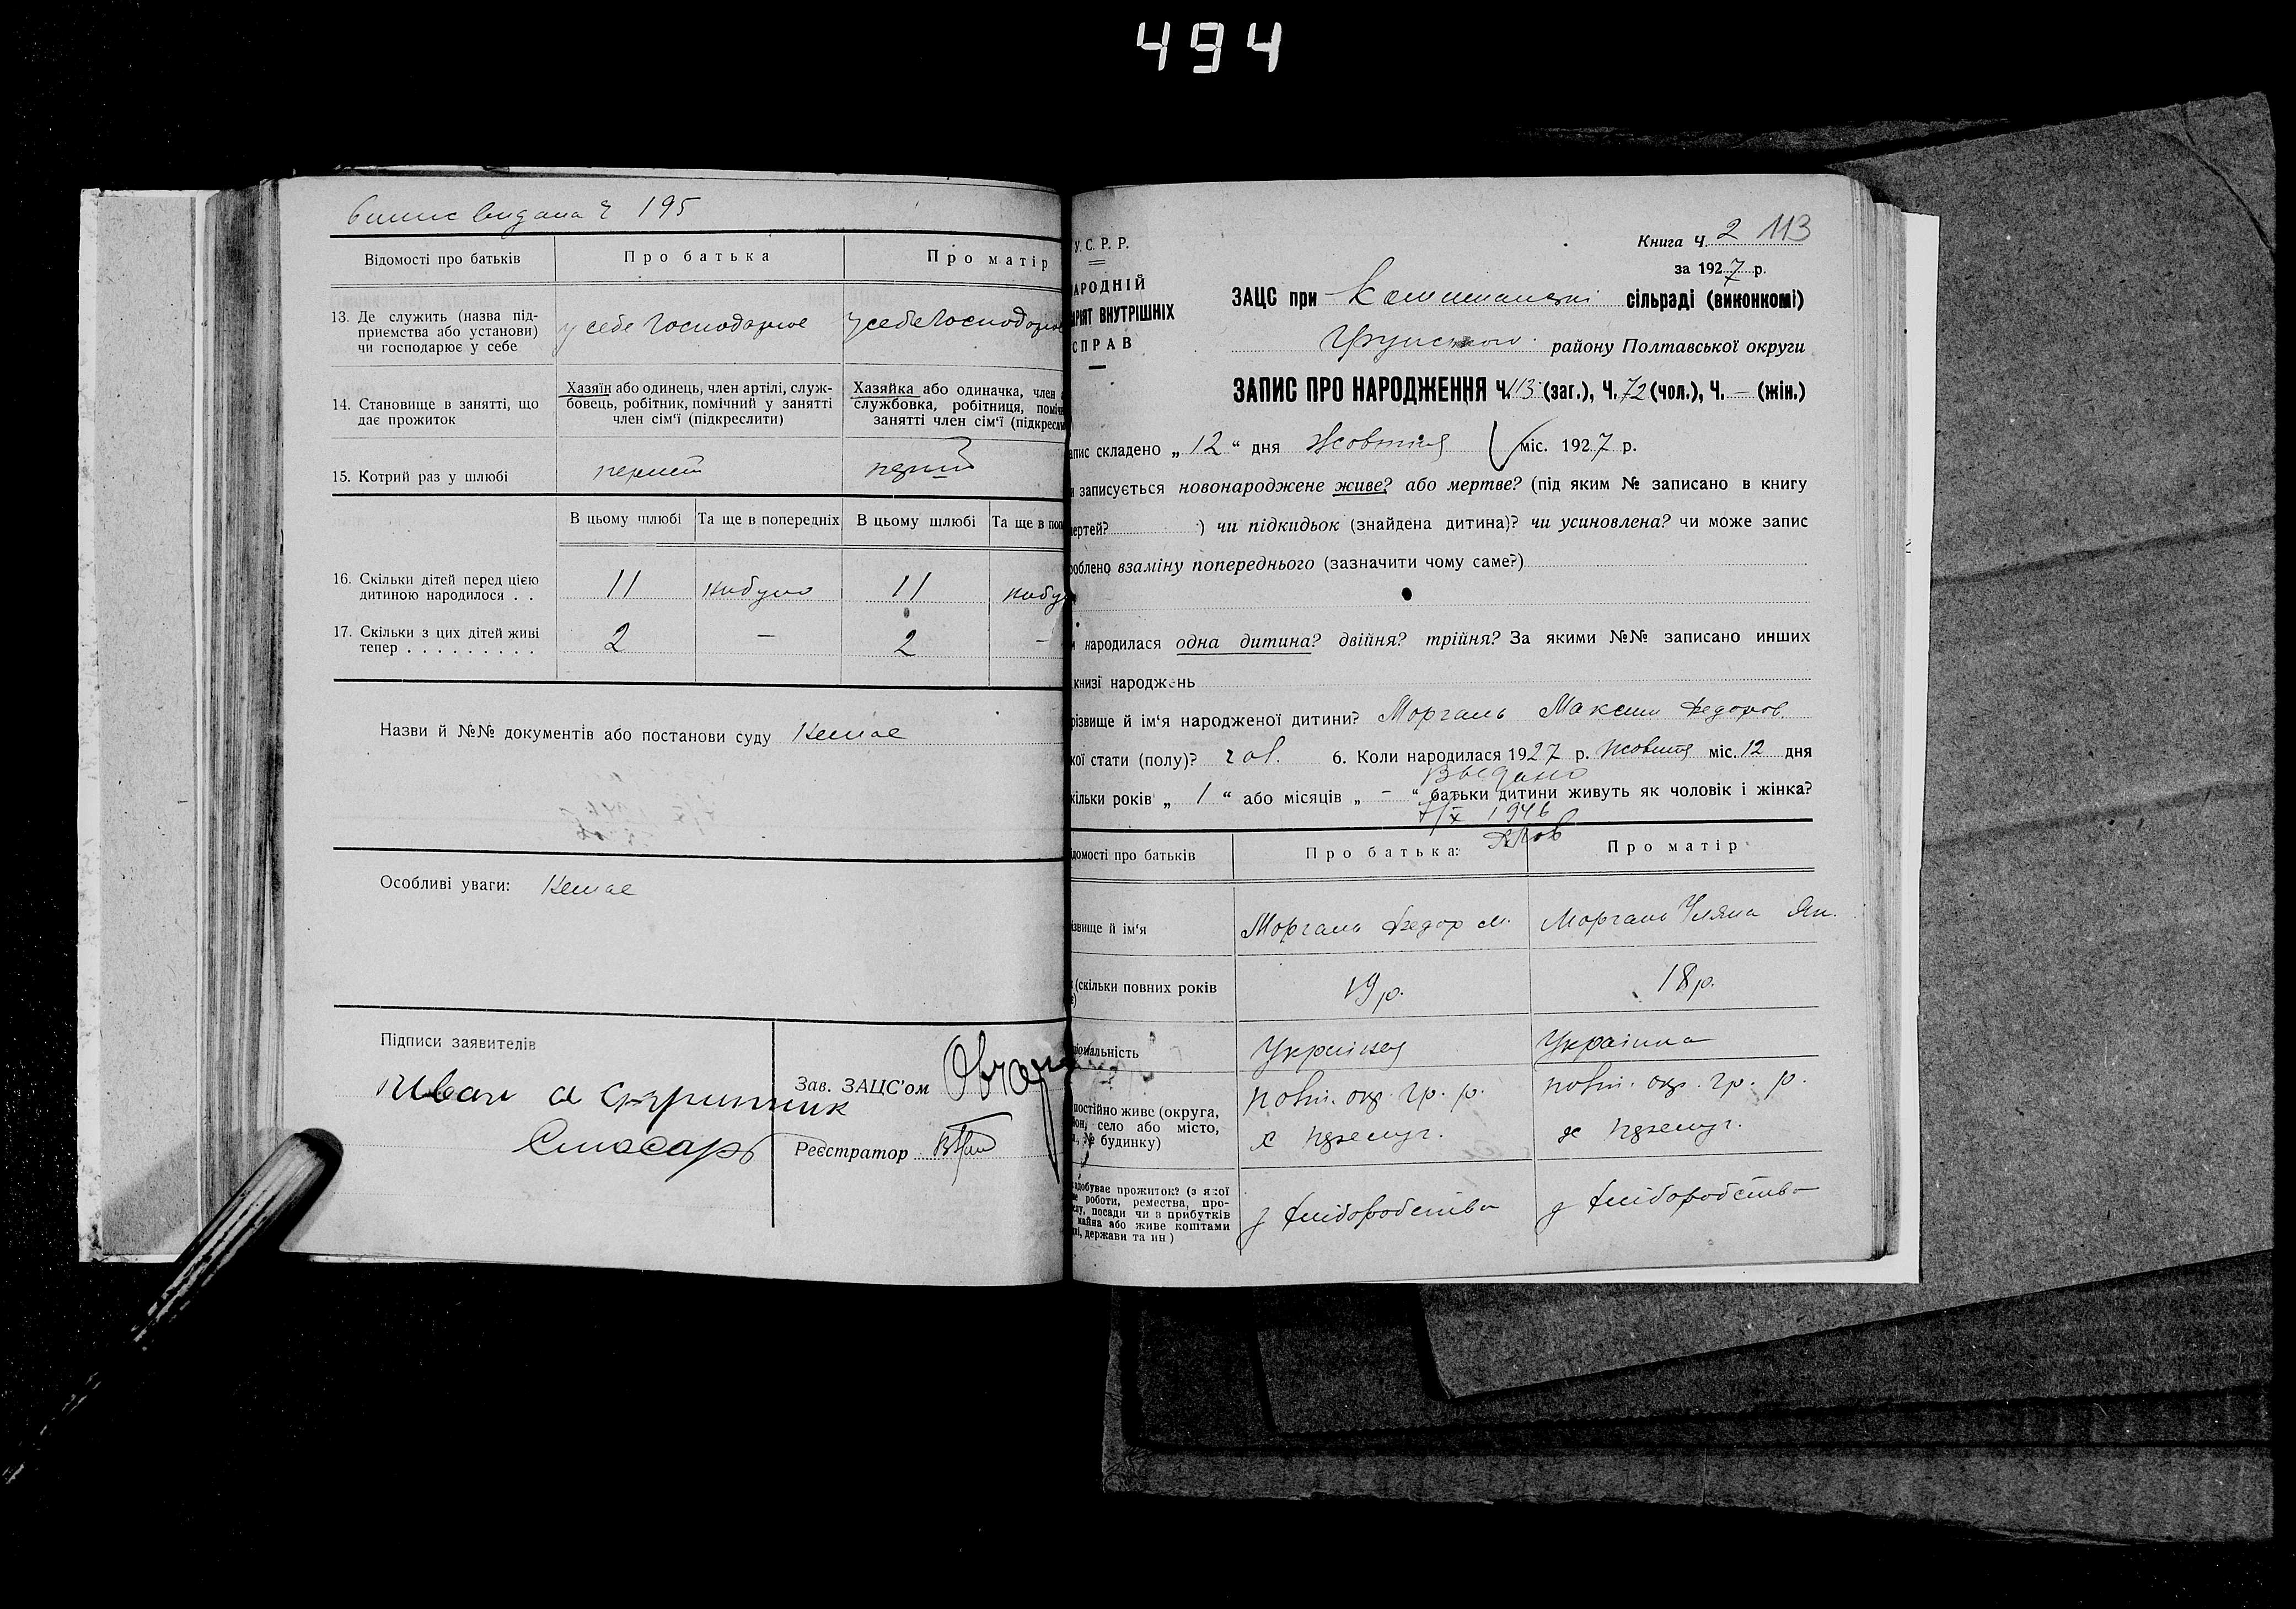 494
195
Відомості про батьків
Про батька
Про матір
13. Де служить (назва під-
приємства або установи)
чи господарює у себе
у себе господарює
у себе господарює
14. Становище в занятті, що
дає прожиток
Хазяїн або одинець, член артілі, служ-
бовець, робітник, помічний у занятті
член сім'ї (підкреслити)
Хазяйка або одиначка, член
службовка, робітниця,
занятті член сім'ї
15. Котрий раз у шлюбі
В цьому шлюбі
Та ще в попередніх
В цьому шлюбі
Та ще в
16. Скільки дітей перед цією
дитиною народилося . .
11
11
17. Скільки з цих дітей живі
тепер . . . . . . . . .
2
—
2
—
Назви й №№ документів або постанови суду Немає
Особливі уваги: Немає
Підписи заявителів
Иван
Слюсарь
Зав. ЗАЦС'ом
Реєстратор
У. С. Р. Р.
АРОДНІЙ
ВНУТРІШНІХ
СПРАВ
Книга Ч. 2 113
за 1927 р.
ЗАЦС при сільраді (виконкомі)
району Полтавської округи
ЗАПИС ПРО НАРОДЖЕННЯ Ч. 113 (заг.), Ч. 72 (чол.), Ч. — (жін.)
апис складено „ 12 “ дня Жовтня міс. 1927 р.
записується новонароджене живе? або мертве? (під яким № записано в книгу
мертей? ) чи підкидьок (знайдена дитина)? чи усиновлена? чи може запис
роблено взаміну попереднього (зазначити чому саме?)
народилася одна дитина? двійня? трійня? За якими №№ записано инших
книзі народжень
різвище й ім'я народженої дитини? Моргаль Максим Федоров.
кої стати (полу)? чол. 6. Коли народилася 1927 р. Жовтня міс. 12 дня
Выдано
кільки років „ 1 “ або місяців „ – “ батьки дитини живуть як чоловік і жінка?
1946
домості про батьків
Про батька:
Про матір
звище й ім'я
Моргаль Федор М.
Моргаль Уляна Як.
(скільки повних років
19 р.
18 р.
ціональність
Українец
Українка
постійно живе (округа,
он, село або місто,
№ будинку)
Полт. окр. гр. р.
полт. окр. гр. р.
добуває прожиток? (з якої
роботи, ремества, про-
слу, посади чи з прибутків
майна або живе коштами
ні, держави та ин)
з хліборобства
з хліборобства